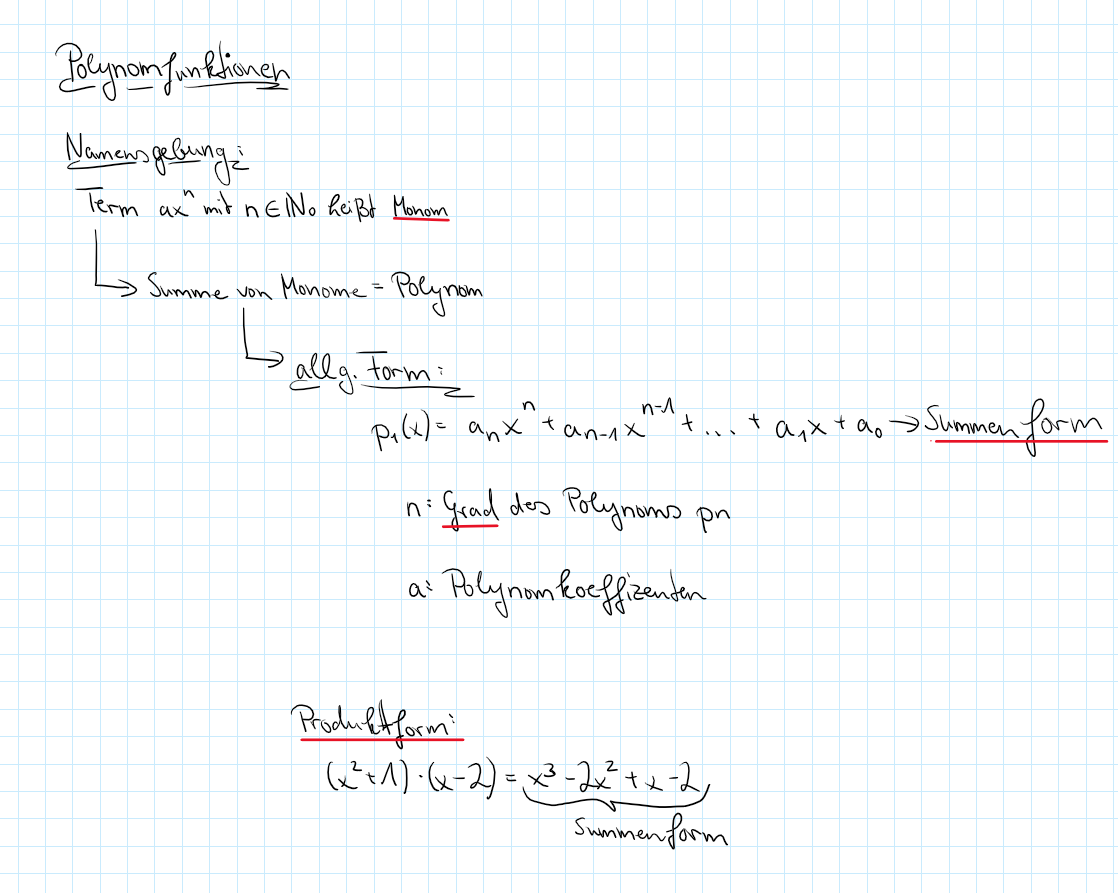 Polynomfunktionen
Namensgebung:
Term axⁿ mit n ∈ ℕ₀ heißt Monom
↳ Summe von Monome = Polynom
↳ allg. Form:
p₁(x) = aₙxⁿ + aₙ₋₁xⁿ⁻¹ + ... + a₁x + a₀ → Summenform
n: Grad des Polynoms pn
a: Polynomkoeffizenten
Produktform:
(x² + 1) · (x - 2) = x³ - 2x² + x - 2
Summenform